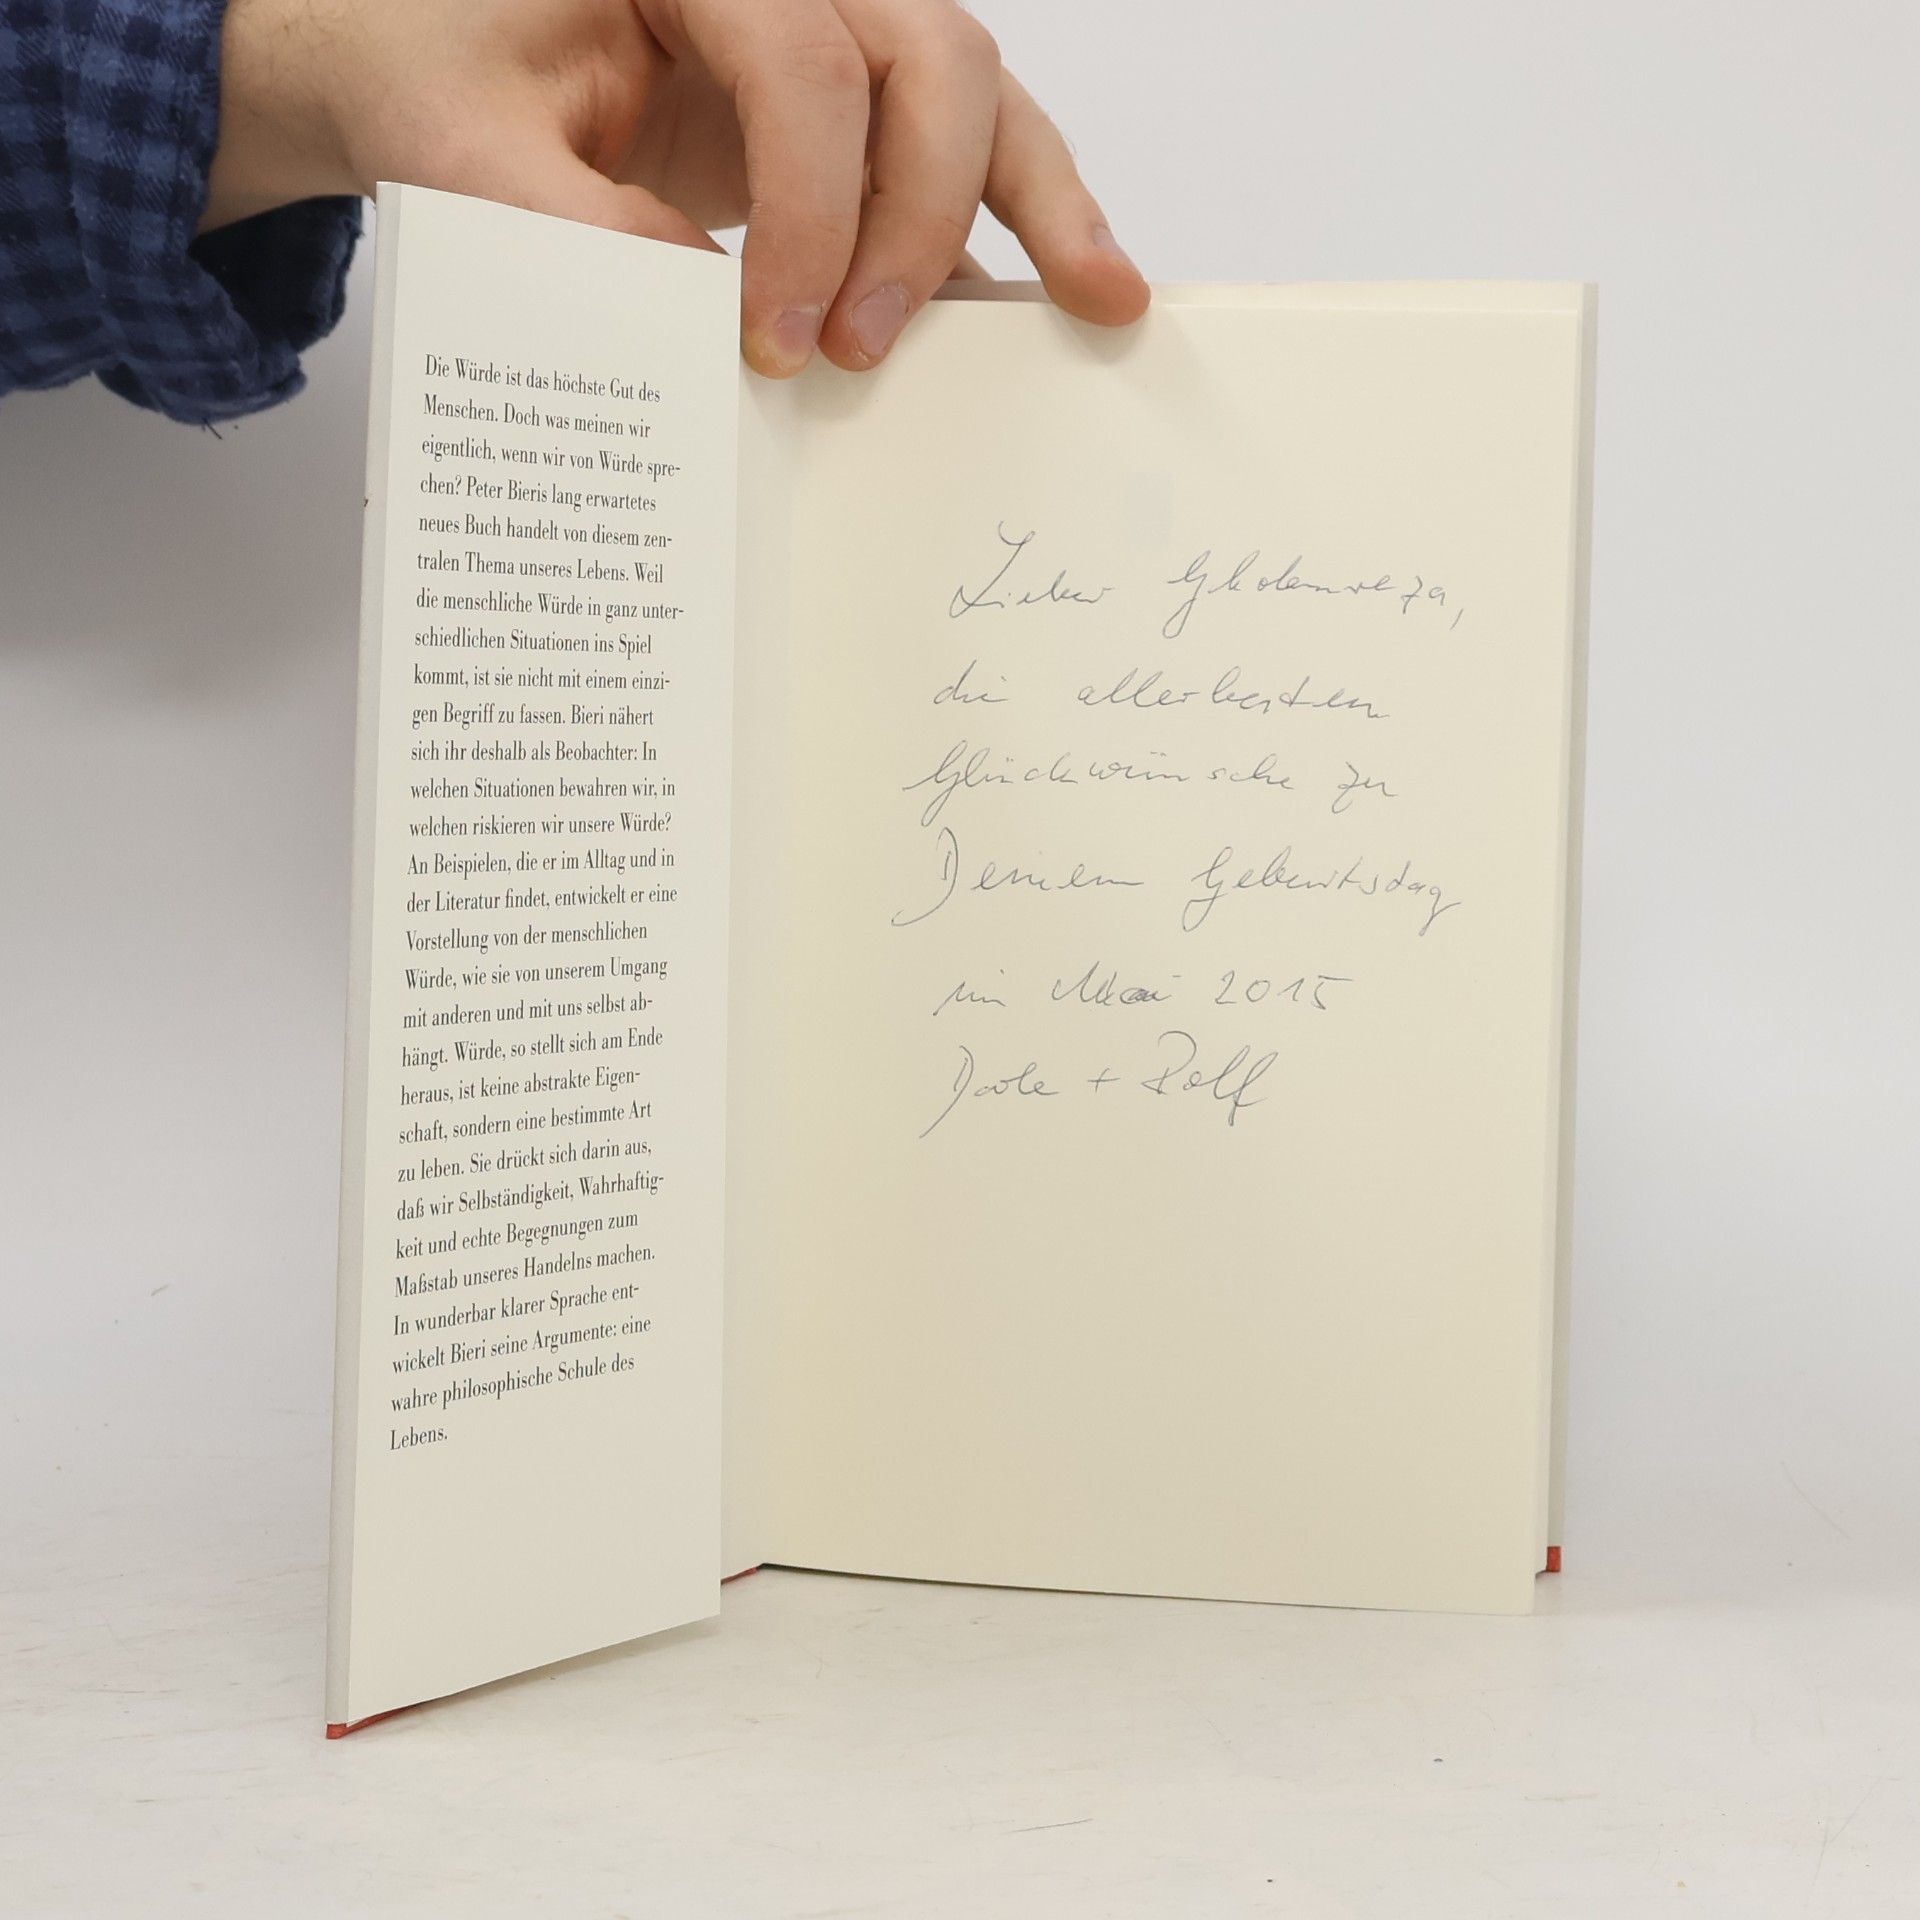 Die Würde ist das höchste Gut des
Menschen. Doch was meinen wir
eigentlich, wenn wir von Würde spre-
chen? Peter Bieris lang erwartetes
neues Buch handelt von diesem zen-
tralen Thema unseres Lebens. Weil
die menschliche Würde in ganz unter-
schiedlichen Situationen ins Spiel
kommt, ist sie nicht mit einem einzi-
gen Begriff zu fassen. Bieri nähert
sich ihr deshalb als Beobachter: In
welchen Situationen bewahren wir, in
welchen riskieren wir unsere Würde?
An Beispielen, die er im Alltag und in
der Literatur findet, entwickelt er eine
Vorstellung von der menschlichen
Würde, wie sie von unserem Umgang
mit anderen und mit uns selbst ab-
hängt. Würde, so stellt sich am Ende
heraus, ist keine abstrakte Eigen-
schaft, sondern eine bestimmte Art
zu leben. Sie drückt sich darin aus,
daß wir Selbständigkeit, Wahrhaftig-
keit und echte Begegnungen zum
Maßstab unseres Handelns machen.
In wunderbar klarer Sprache ent-
wickelt Bieri seine Argumente: eine
wahre philosophische Schule des
Lebens.
Lieber Gholamreza,
die allerbesten
Glückwünsche zu
Deinem Geburtstag
im Mai 2015
+ Rolf